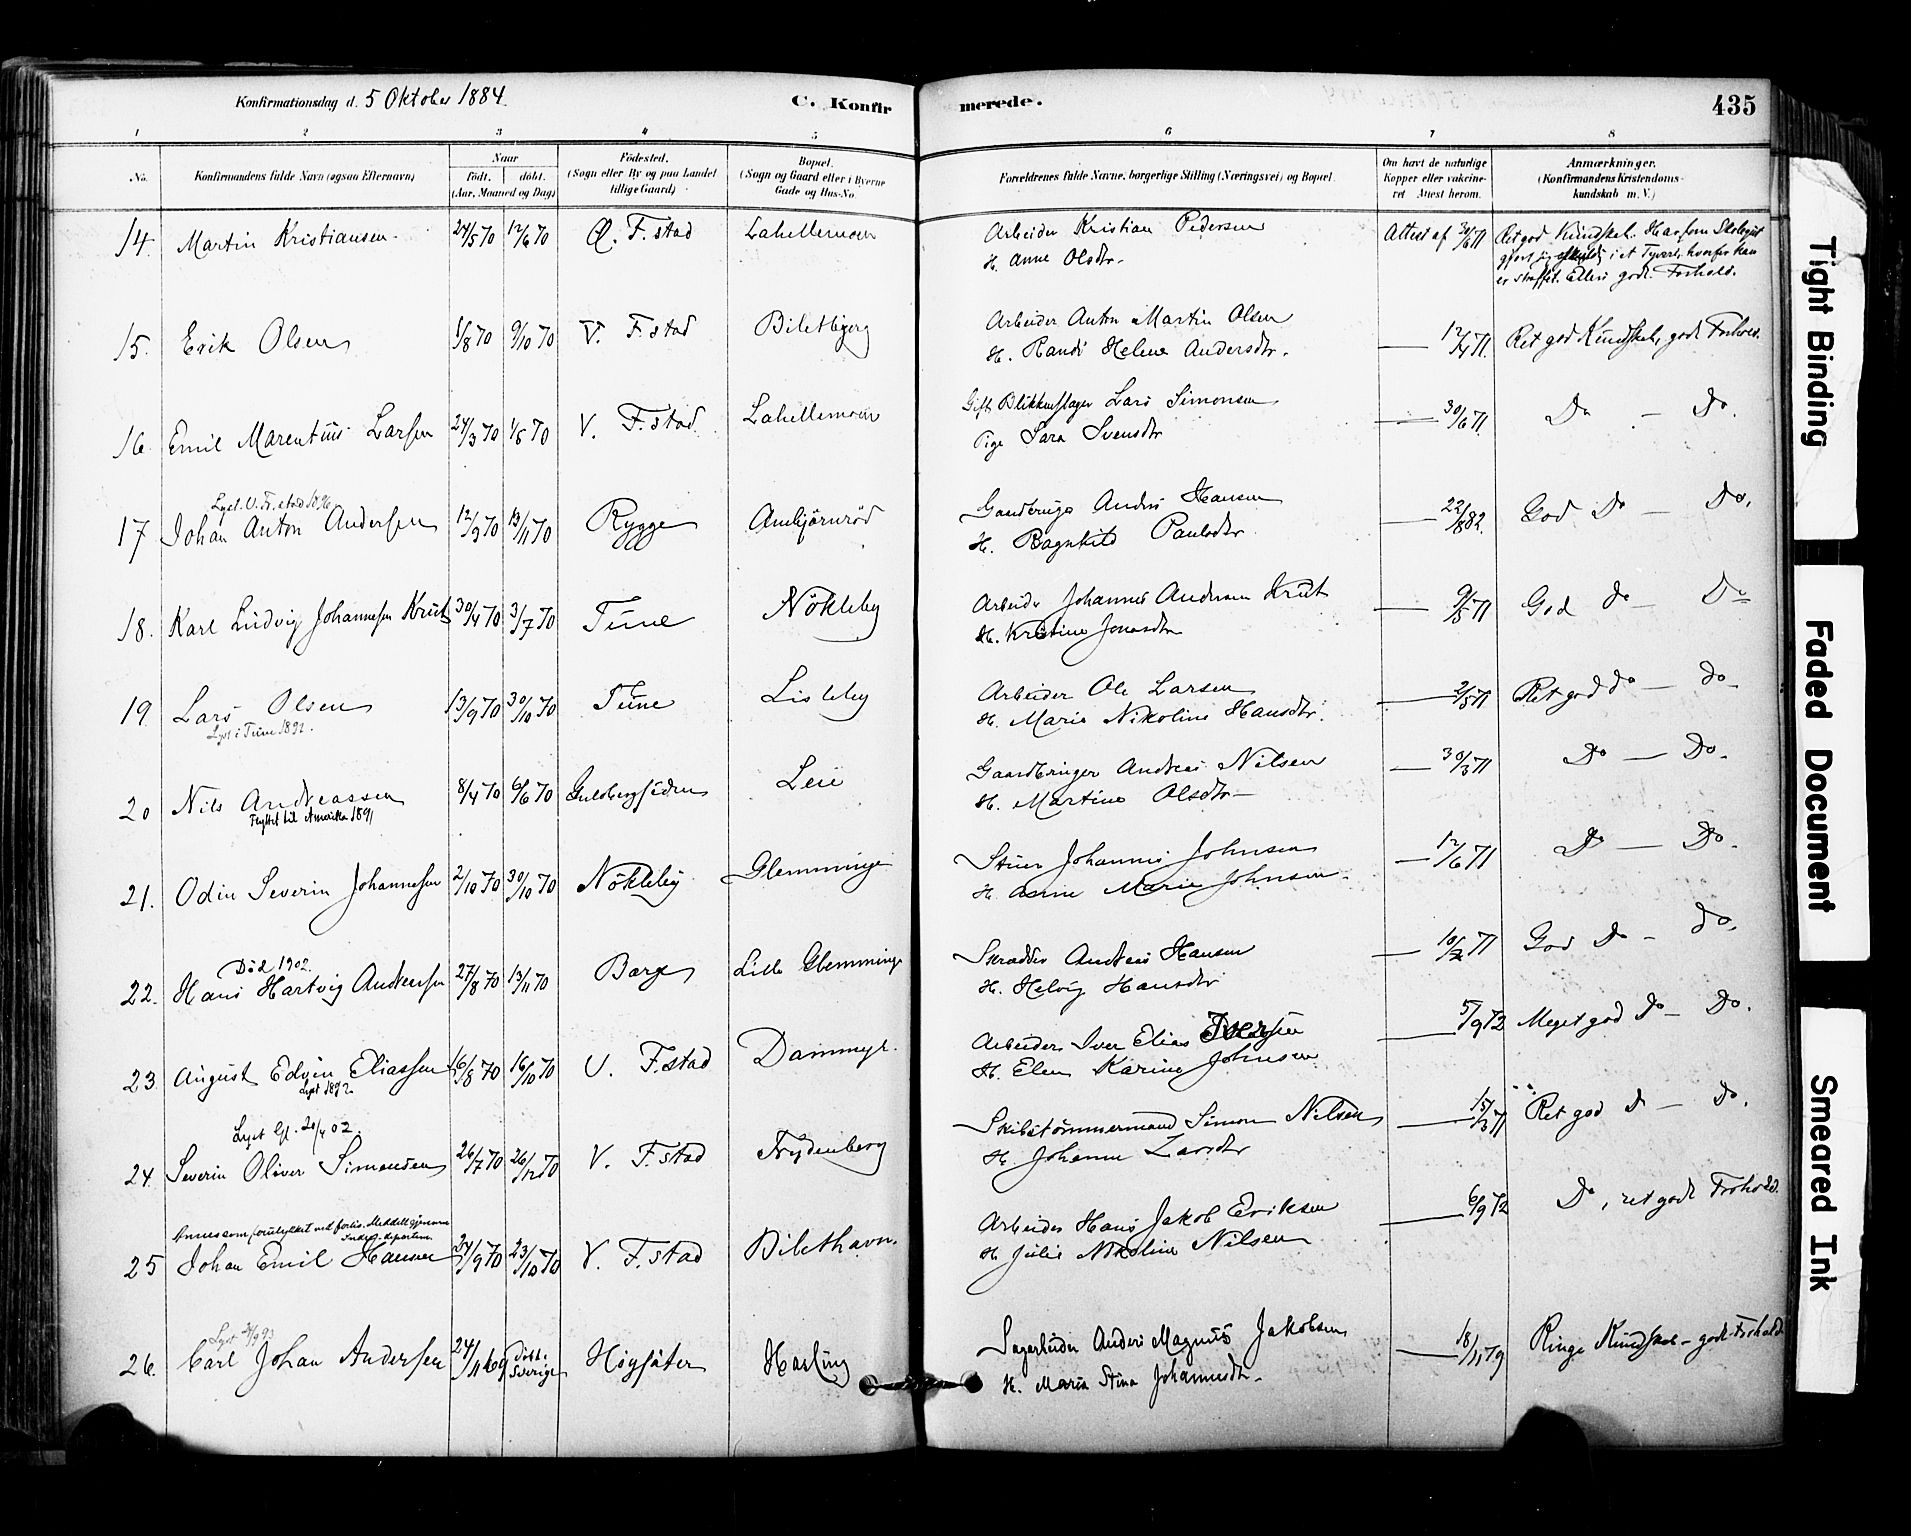 Konfirmationsdag d. 5 Oktober 1884.
C. Konfirmerede.
435
1 2 3 4 5 6 7 8
No.
Konfirmandens fulde Navn (ogsaa Efternavn)
Naar
født. døbt.
(Aar, Maaned og Dag)
Fødested.
(Sogn eller By og paa Landet
tillige Gaard)
Bopæl.
(Sogn og Gaard eller i Byerne
Gade og Hus-No.
Forældrenes fulde Navne, borgerlige Stilling (Næringsvei) og Bopæl.
Om havt de naturlige
Kopper eller vakcine-
ret Attest herom.
Anmærkninger.
(Konfirmandens Kristendoms-
kundskab m. V.)
14. Martin Kristiansen 24/5 70 12/6 70 Ø. F.stad Lahellemoen Arbeider Kristian Pedersen Attest af 30/6 71 Ret god Kundskab. Har som Skolegut
H. Anne Olsdtr. gjort sig skyldig i et Tyveri, hvorfor han
er straffet. Ellers godt Forhold.
15. Erik Olsen 1/8 70 9/10 70 V. F.stad Biletbjerg Arbeider Anton Martin Olsen — 12/4 71. Ret god Kundskab, godt Forhold.
H. Randi Helene Andersdtr.
16. Emil Marentius Larsen 24/3 70 1/5 70 V. F.stad Lahellemoen Gift Blikkenslager Lars Simonsen — 30/6 71. Do — Do.
Pige Sara Svensdtr
Lyst V. Fr.stad 1896
17 Johan Anton Andersen 12/9 70 13/11 70 Rygge Ambjörnröd Gaardbruger Anders Hansen — 22/8 82. God Do — Do.
H. Ragnhild Paulsdtr
18. Karl Ludvig Johannesen Krut 30/4 70 3/7 70 Tune Nökleby Arbeider Johannes Andersen Krut — 9/5 71 God Do — Do
H. Kristine Jonasdtr
19 Lars Olsen 13/9 70 30/10 70 Tune Lisleby Arbeider Ole Larsen — 2/5 71 Ret god do — do
Lyst i Tune 1892. H. Marie Nikoline Hansdtr.
20 Nils Andreassen 8/4 70 6/6 70 Guldbergsiden Leie Gaardbruger Andreas Nilsen — 30/3 71 Do — Do.
Flyttet til Amerika 1891 H. Martine Olsdtr
21. Odin Severin Johannesen 2/10 70 30/10 70 Nökleby Glemminge Stuer Johannes Johnsen — 12/6 71 Do — Do.
H. Anne Marie Johnsen
Död 1902.
22. Hans Hartvig Andersen 27/8 70 13/11 70 Borge Lille Glemminge Skrædder Anders Hansen — 10/2 71 God Do — do.
H. Helvig Hansdtr
23. August Edvin Eliassen 16/8 70 16/10 70 V. F.stad Dammyr. Arbeider Iver Elias Iversen — 5/9 72 Meget god Do — Do.
Lyst 1892 H. Elen Karine Johnsen
Lyst Gl. 20/4 02.
24. Severin Oliver Simonsen 26/7 70 26/12 70 V. F.stad Frydenberg Skibstømmermand Simon Nilsen — 15/3 71 Ret god Do — Do.
H. Johanne Larsdtr
25 Johan Emil Hansen 24/9 70 23/10 70 V. F.stad Bilethavn. Arbeider Hans Jakob Eriksen — 6/9 72 Do, ret godt Forhold.
H. Julie Nikoline Nilsen
Lyst 24/9 93
26. Carl Johan Andersen 24/11 69 Döbt i Sverige Högsäter Hasling Sagarbeider Anders Magnus Jakobsen — 18/11 79 Ringe Kundskab — godt Forhold
H. Maria Stina Johannesdtr.
Tight Binding
Faded Document
Smeared Ink